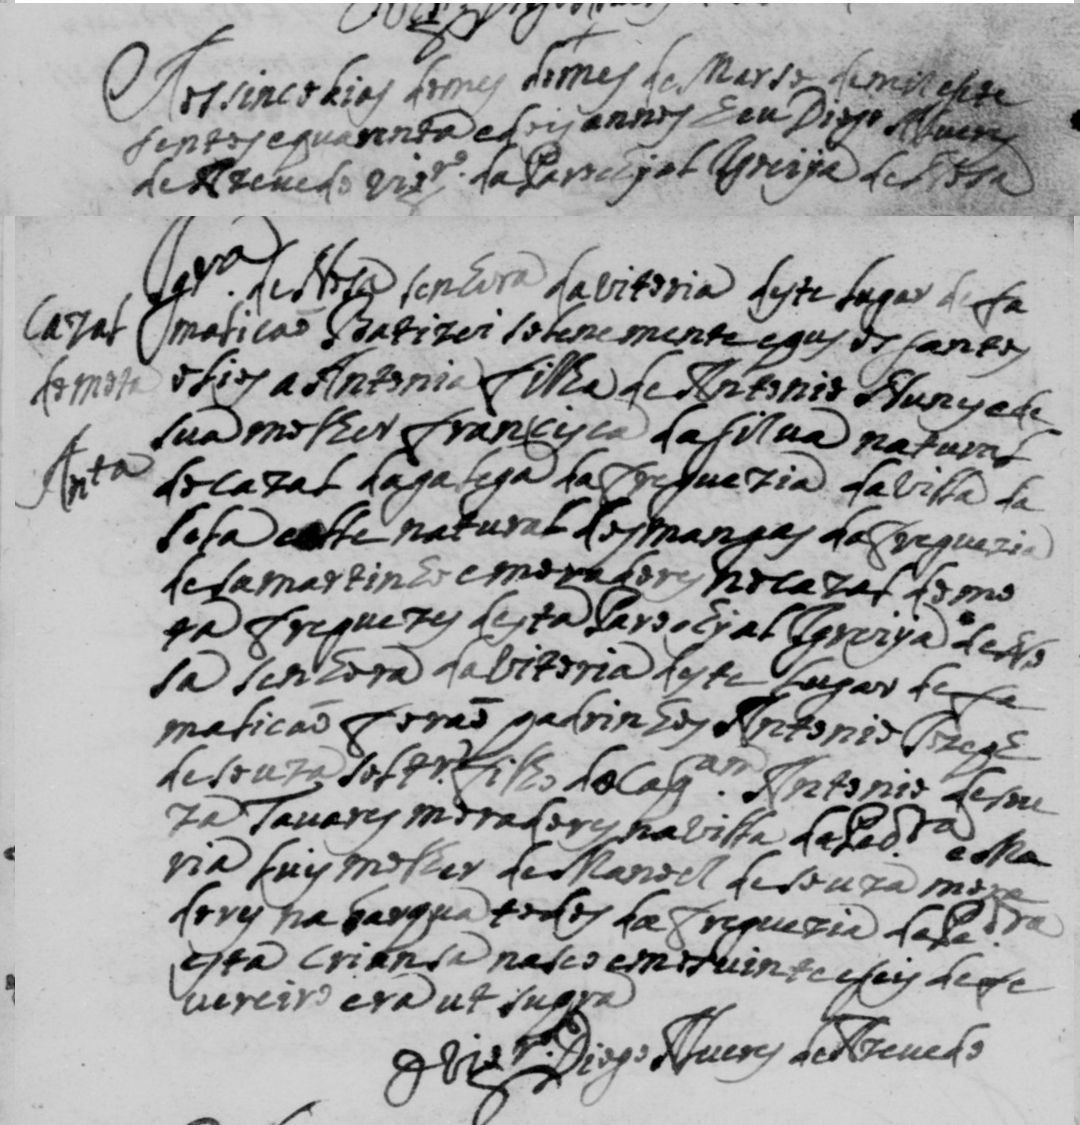 Aos sinco dias do mes do mes de Março de mil e sete
sentos e quarenta e dois annos Eu Diogo Alueres
de Azeuedo vigr.º da Parochial Igreija de Nosa
Igra. de Nosa senhora da vitoria deste lugar de Fa
Cazal
malicaõ Batizei solenemente e pus os santos
da mota
olios a Antonia filha de Antonio Nunes e de
sua molher Francisca da silua natural
Anta
do cazal da galega da freguezia da villa da
natural dos mangas da freguezia
de samartinho e moradores no cazal da mo
ta freguezes desta Parochial Igreija de No
sa senhora da vitoria deste lugar de Fa
malicaõ foraõ padrinhos Antonio
de souza soltrº filho do Capam. Antonio de sou
za Tauares moradores na villa da Pedra e Ma
ria luis molher de Manoel de souza mora
dores na barqua todos da freguezia da Pedra
esta criansa nasceo em os uinte e seis de fe
uereiro era ut supra
O Vigrº. Diogo Alueres de Azeuedo